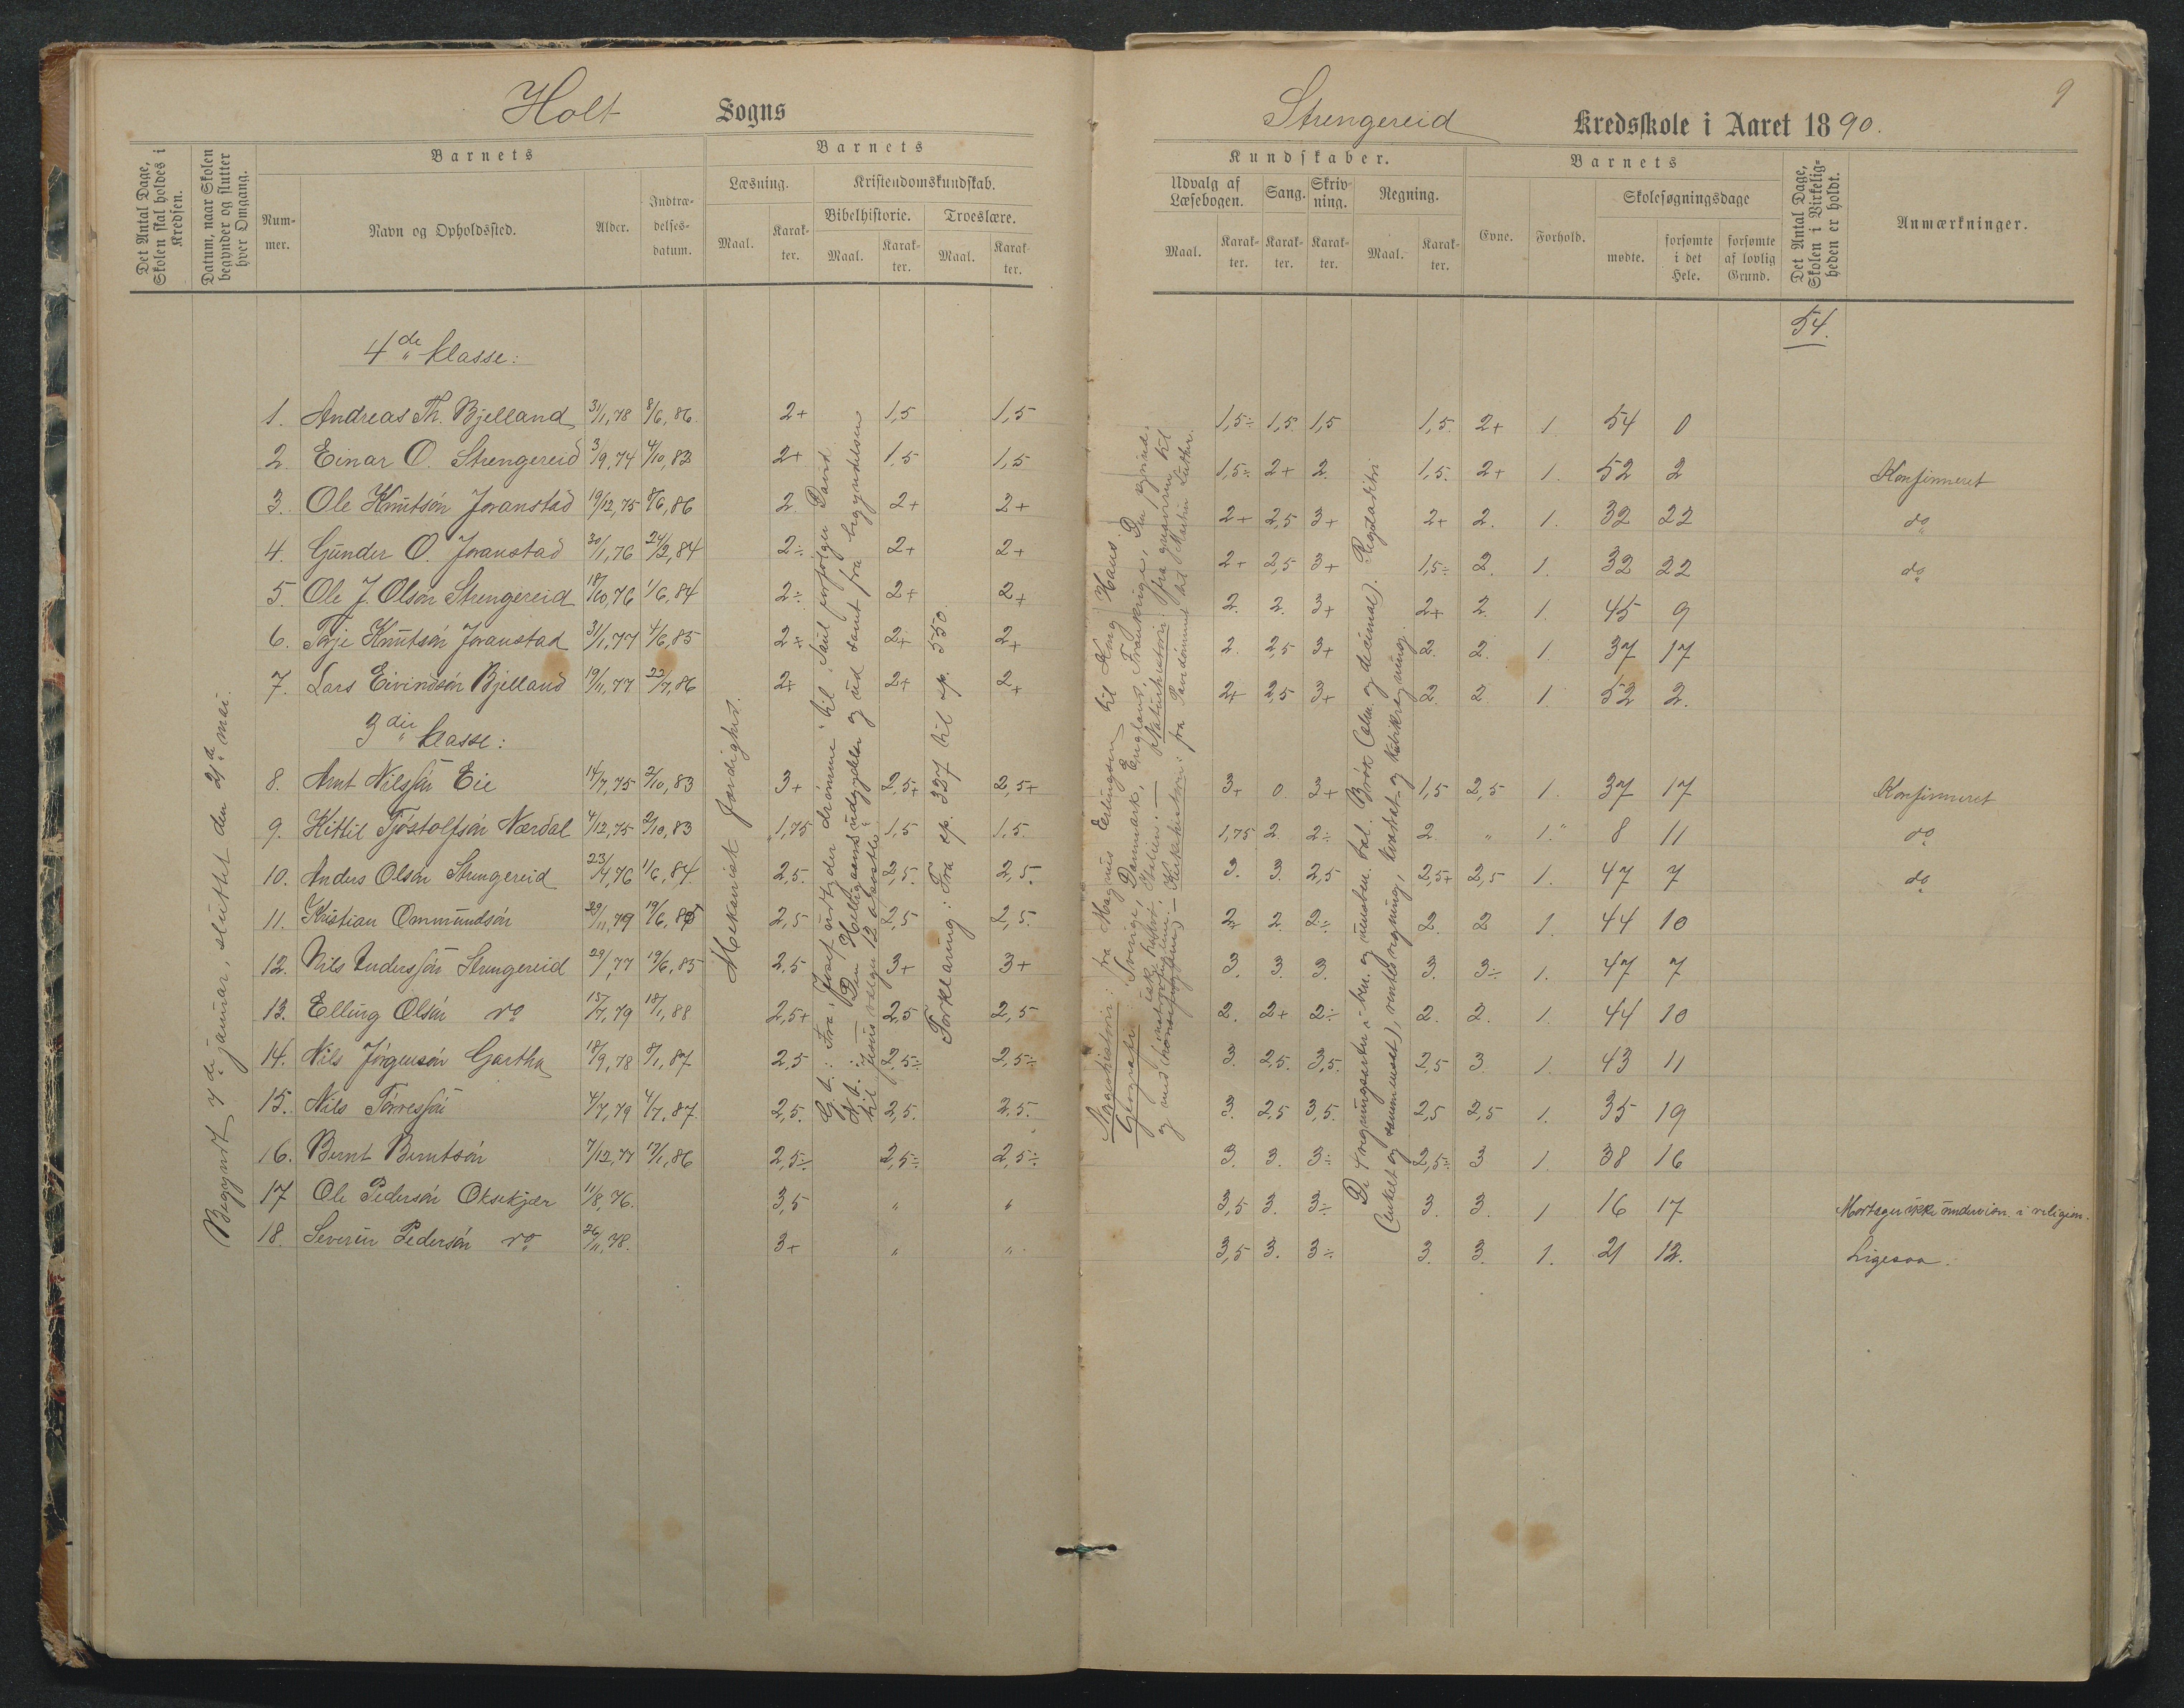 Holt Sogns
Strengereid Kredsskole i Aaret 1890.
9
Det Antal Dage, Skolen skal holdes i Kredsen.
Datum, naar Skolen begynder og slutter hver Omgang.
Barnets
Nummer.
Navn og Opholdssted.
Alder.
Indtrædelsesdatum.
Barnets
Læsning.
Maal.
Karakter.
Kristendomskundskab.
Bibelhistorie.
Maal.
Karakter.
Troeslære.
Maal.
Karakter.
Kundskaber.
Udvalg af Læsebogen.
Maal.
Karakter.
Sang.
Karakter.
Skrivning.
Karakter.
Regning.
Maal.
Karakter.
Barnets
Evne.
Forhold.
Skolesøgningsdage
mødte.
forsømte i det Hele.
forsømte af lovlig Grund.
Det Antal Dage, Skolen i Virkeligheden er holdt.
Anmærkninger.
54.
Begyndt 7de januar, sluttet den 21de mai.
Mekanisk færdighed.
G. t.: Fra „Josef udtyder drømme" til „Saul forfølger David
N. t.: — „Den Helligaands udgydelse og ud samt fra begyndelsen
til „Jesus vælger 12 apostle".
Forklaring: Fra sp. 327 til sp. 550.
Sagahistorie: fra Magnus Erlingsøn til Kong Hans.
Geografi: Sverige, Danmark, England, Frankrige, Den pyrenæ-
iske halvø, Italien. — Naturhistorie: fra gnavere til
— Kirkehistorie: fra Pavedømmet til Martin Luther.
De 4 regningsarter i ben. og ubeben. tal. Brøk (alm. og decimal). Reguladetri
(enkelt og sammensat), rentesregning, kvadrat- og kubikregning.
4de klasse:
1. Andreas Th. Bjelland 31/1,78 8/6,86. 2+ 1,5 1,5 1,5÷ 1,5. 1,5 1,5. 2+ 1 54 0
2. Einar O. Strengereid 3/9,74 4/10,83 2+ 1,5 1,5 1,5÷ 2+ 2. 1,5. 2+ 1. 52 2 Konfirmeret
3. Ole Knutsøn Joranstad 19/12,75 8/6,86 2 2+ 2+ 2+ 2,5 3+ 2+ 2. 1. 32 22 do
4. Gunder O. Joranstad 30/1,76 24/2,84 2÷ 2+ 2+ 2+ 2,5 3+ 1,5÷ 2. 1. 32 22 do
5. Ole J. Olsøn Strengereid 18/10,76 1/6,84 2÷ 2+ 2+ 2. 2. 3+ 2+ 2. 1. 45 9
6. Terje Knutsøn Joranstad 31/1,77 4/6,85 2÷ 2+ 2+ 2. 2,5 3+ 2. 2. 1. 37 17
7. Lars Eivindsøn Bjelland 19/11,77 23/7,86 2+ 2+ 2+ 2+ 2,5 3+ 2. 2 1 52 2.
3die klasse:
8. Arnt Nilssøn Eie 14/7,75 2/10,83 3+ 2,5+ 2,5+ 3+ 0 3+ 1,5 2,5 1. 37 17 Konfirmeret
9. Kittil Tjøstolfsøn Nærdal 4/12,75 2/10,83 1,75 1,5 1,5. 1,75 2 2÷ 2 " 1." 8 11 do
10. Anders Olsøn Strengereid 23/4,76 1/6,84. 2,5. 2,5. 2,5. 3. 3. 2,5 2,5+ 2,5 1. 47 7 do
11. Kristian Ommundsøn 29/11,79 19/6,87 2,5 2,5 2,5. 2+ 2. 2÷ 2. 2 1. 44 10
12. Nils Anderssøn Strengereid 29/1,77 19/6,85 2,5 3+ 3+ 3. 3. 3. 3. 3÷ 1. 47 7
13. Elling Olsøn do 15/7,79 18/1,88 2,5+ 2,5 2,5 2. 2+ 2÷ 2. 2. 1. 44 10
14. Nils Jörgensøn Gartha 18/9,78 8/1,87 2,5 2,5÷ 2,5÷ 3 2,5. 3,5. 2,5 3. 1. 43 11
15. Nils Tørressøn 4/7,79 4/7,87. 2,5. 2,5. 2,5. 3. 2,5 3,5. 2,5 2,5 1. 35 19
16. Bernt Berntsøn 7/12,77 17/1,86 2,5÷ 2,5÷ 2,5÷ 3. 3. 3÷ 2,5÷ 3 1. 38 16
17 Ole Pedersøn Oksekjær 11/8,76. 3,5 " " 3,5 3. 3÷ 3. 3. 1 16 17 Mottager ikke undervisn. i religion.
18. Severin Pedersøn do 26/11,78. 3+ " " 3,5 3. 3÷ 3. 3. 1. 21 12. Ligesaa.